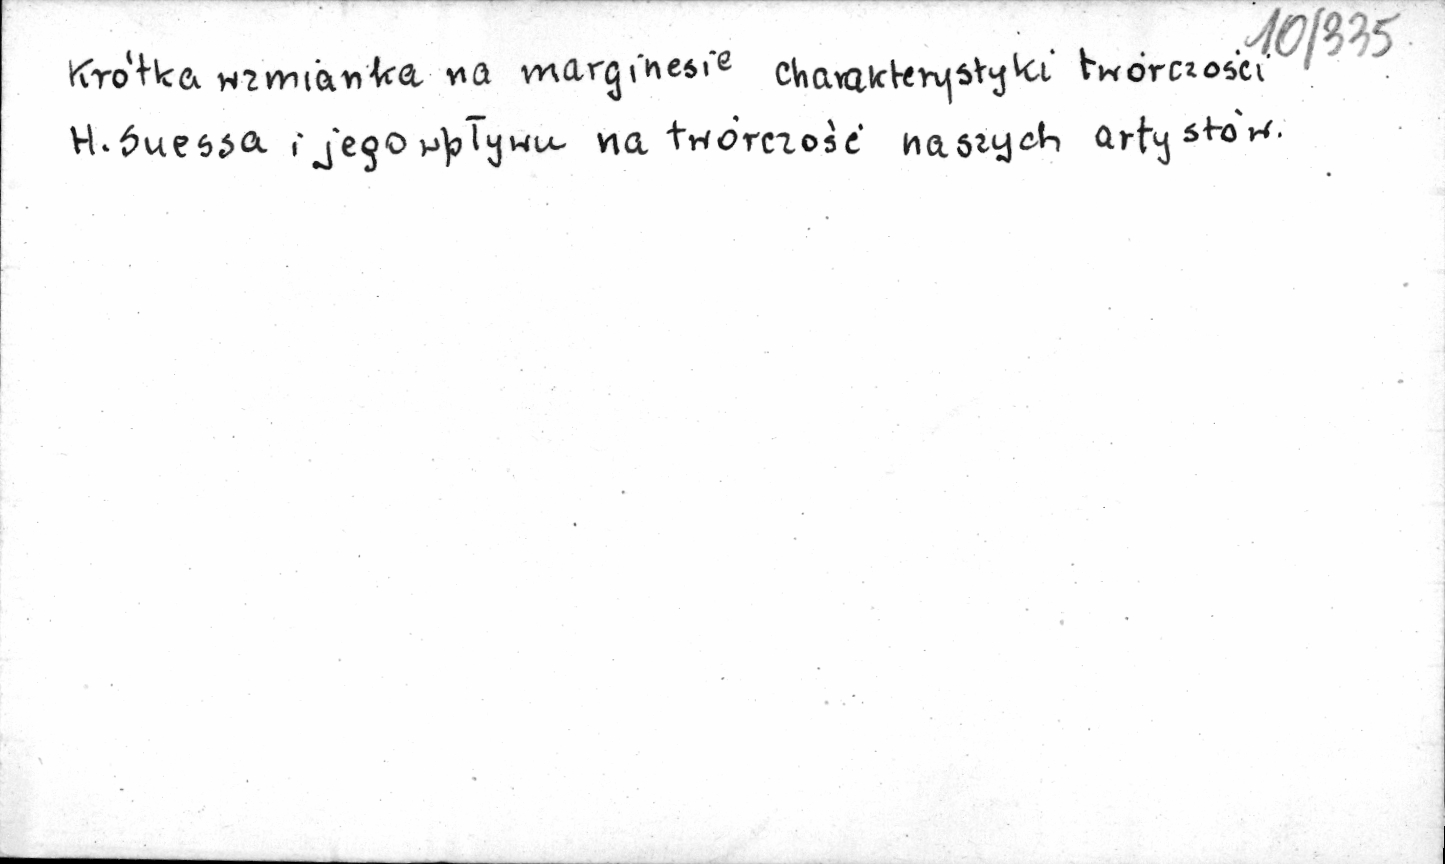 10/335
Krótka wzmianka na marginesie charakterystyki twórczości
H. Suessa i jego wpływu na twórczość naszych artystów.